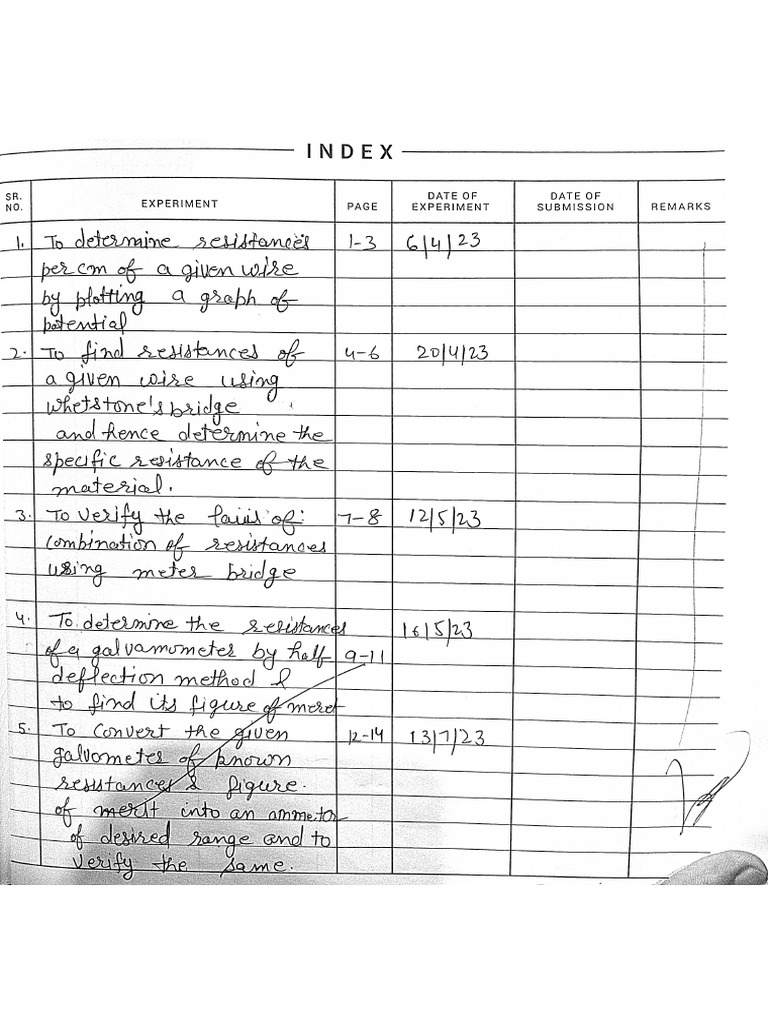 INDEX
SR. NO. EXPERIMENT PAGE DATE OF EXPERIMENT DATE OF SUBMISSION REMARKS
1. To determine resistances 1-3 6/4/23
per cm of a given wire
by plotting a graph of
potential
2. To find resistances of 4-6 20/4/23
a given wire using
whetstone's bridge
and hence determine the
specific resistance of the
material.
3. To verify the laws of 7-8 12/5/23
combination of resistances
using meter bridge
4. To determine the resistances 16/5/23
of a galvamometer by half 9-11
deflection method &
to find its figure of meret
5. To convert the given 12-14 13/7/23
galvometer of known
resistances & figure.
of merit into an ammetor
of desired range and to
verify the same.